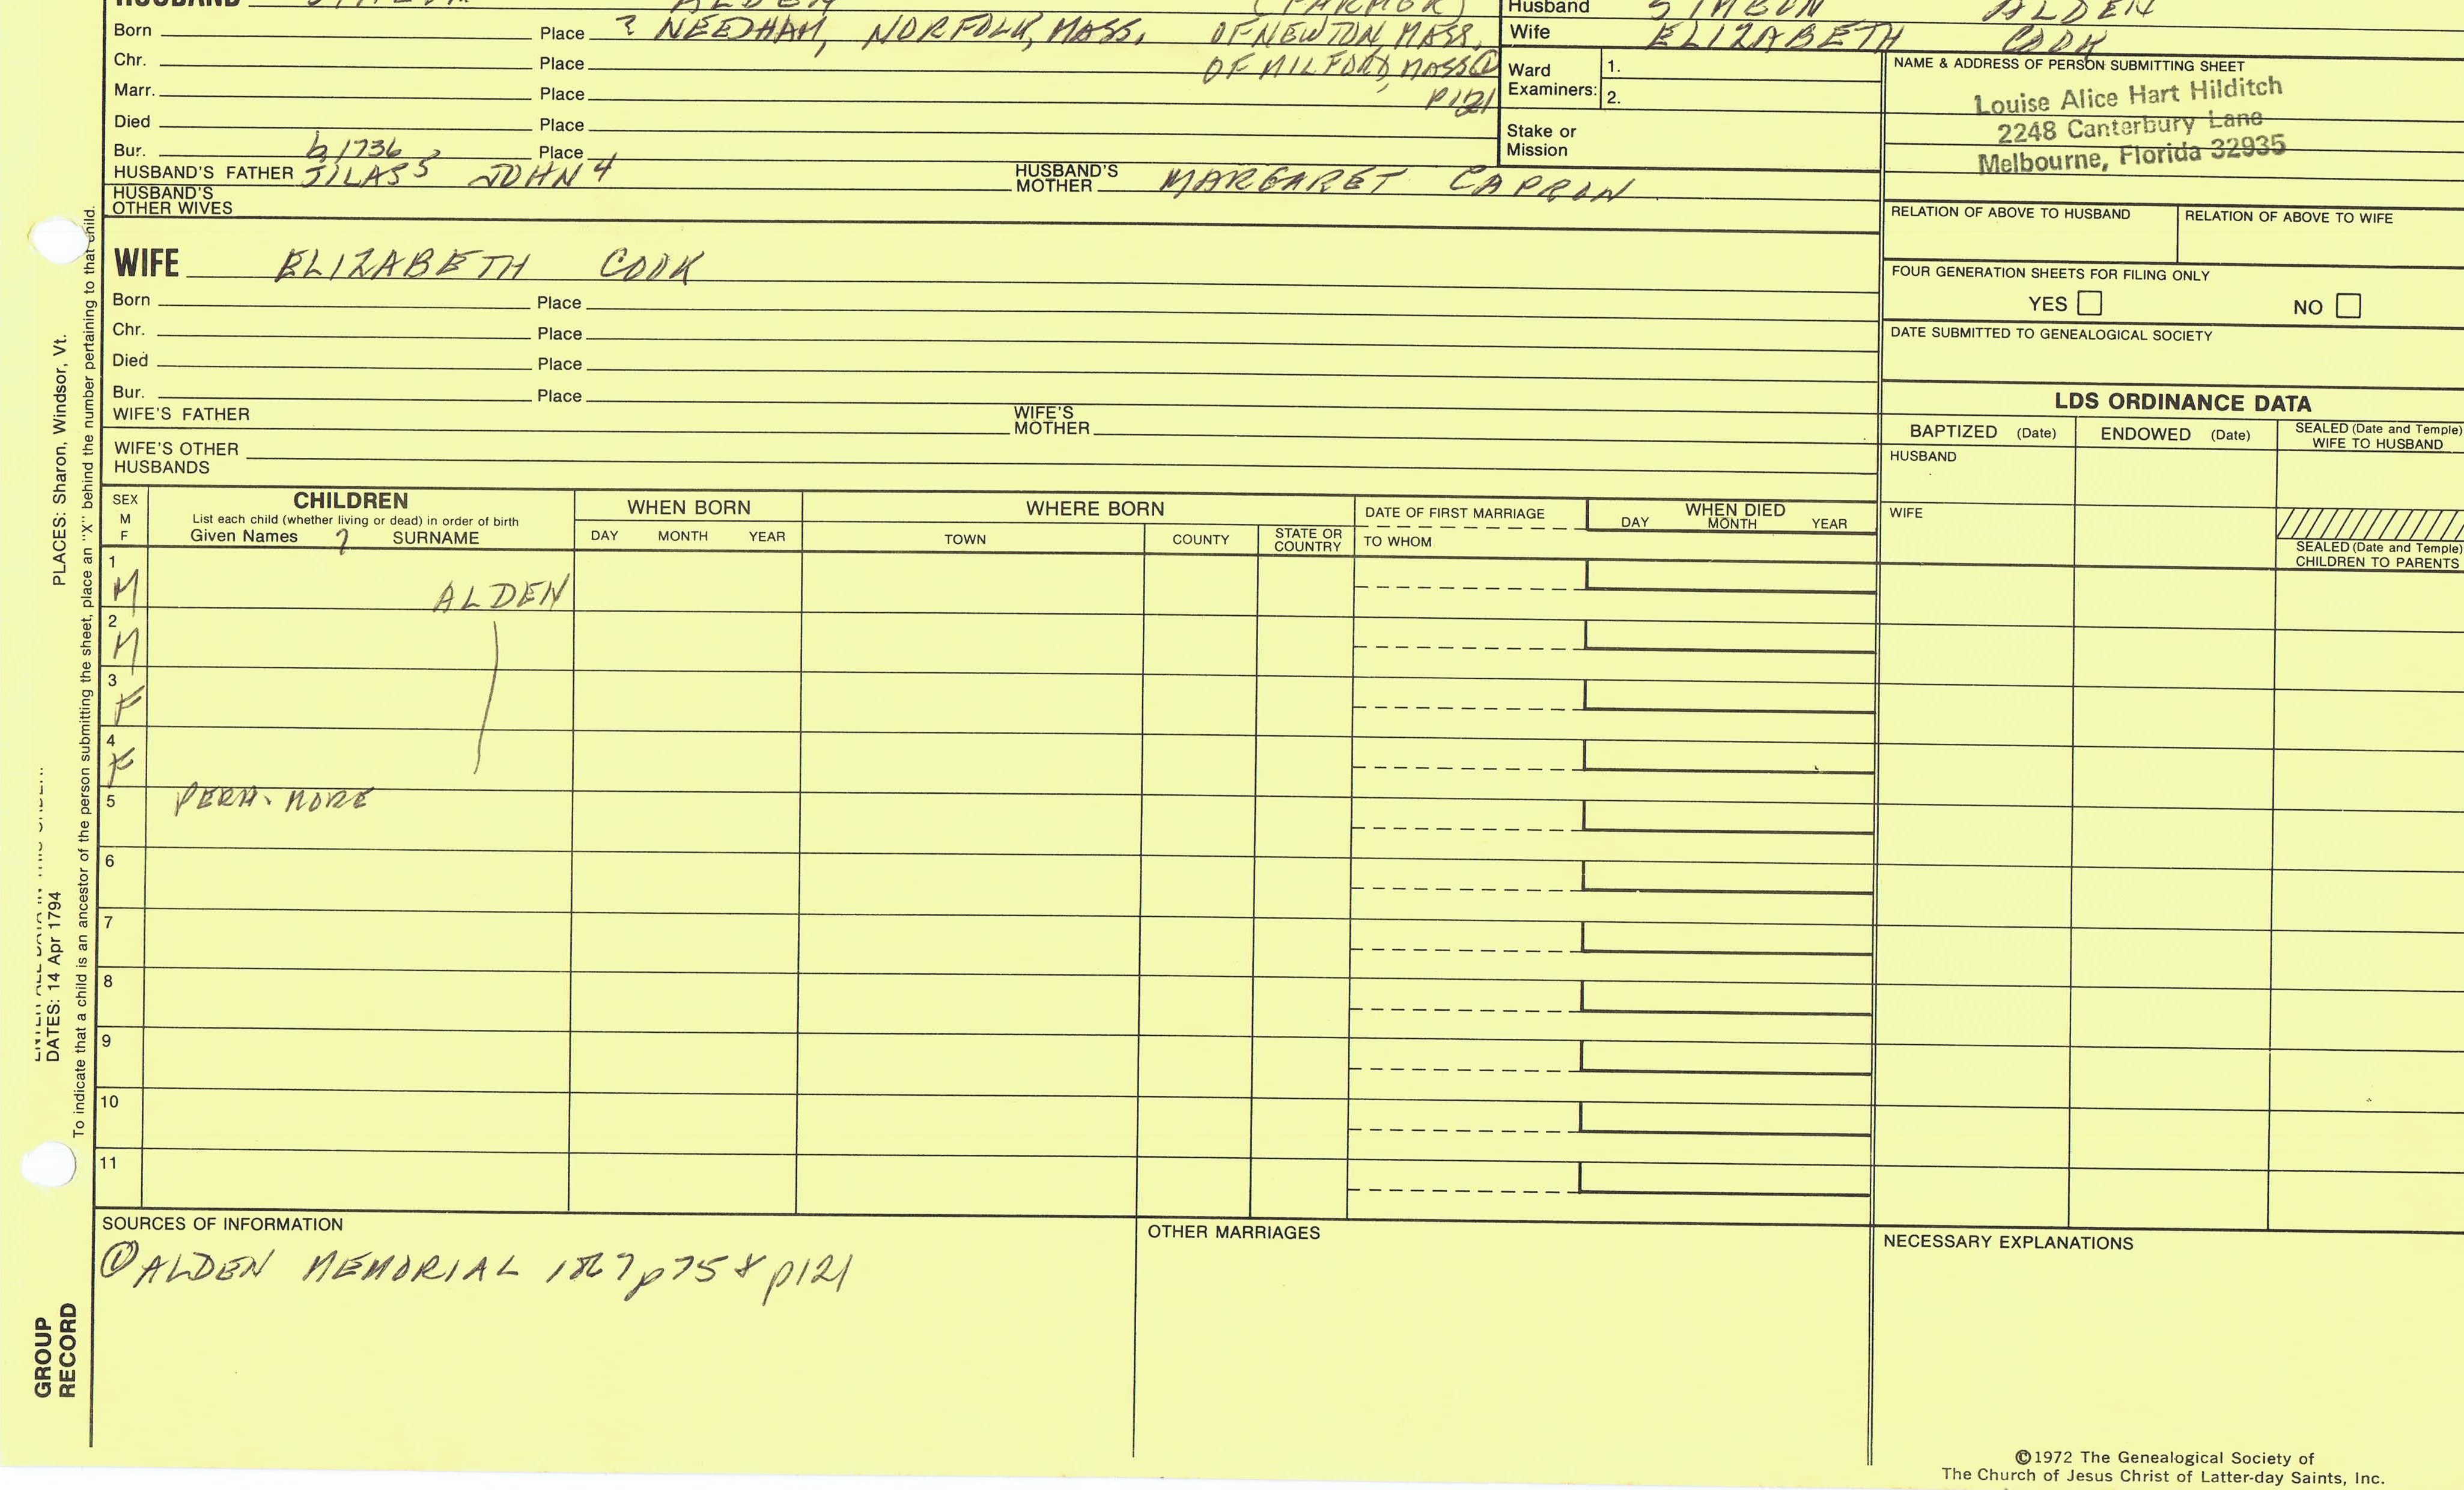 HUSBAND SIMEON ALDEN (FARMER)
Born Place ? NEEDHAM, NORFOLK, MASS. OF NEWTON, MASS.
Chr. Place OF MILFORD, MASS ①
Marr. Place P121
Died Place
Bur. Place
b 1736
HUSBAND'S FATHER SILAS 5 JOHN 4 HUSBAND'S MOTHER MARGARET CAPRON
HUSBAND'S OTHER WIVES
Husband SIMEON ALDEN
Wife ELIZABETH COOK
Ward Examiners: 1.
2.
Stake or Mission
NAME & ADDRESS OF PERSON SUBMITTING SHEET
Louise Alice Hart Hilditch
2248 Canterbury Lane
Melbourne, Florida 32935
RELATION OF ABOVE TO HUSBAND RELATION OF ABOVE TO WIFE
FOUR GENERATION SHEETS FOR FILING ONLY
YES NO
DATE SUBMITTED TO GENEALOGICAL SOCIETY
WIFE ELIZABETH COOK
Born Place
Chr. Place
Died Place
Bur. Place
WIFE'S FATHER WIFE'S MOTHER
WIFE'S OTHER HUSBANDS
LDS ORDINANCE DATA
BAPTIZED (Date) ENDOWED (Date) SEALED (Date and Temple) WIFE TO HUSBAND
HUSBAND
WIFE
SEALED (Date and Temple) CHILDREN TO PARENTS
SEX M F
CHILDREN
List each child (whether living or dead) in order of birth
Given Names ? SURNAME
WHEN BORN
DAY MONTH YEAR
WHERE BORN
TOWN COUNTY STATE OR COUNTRY
DATE OF FIRST MARRIAGE
TO WHOM
WHEN DIED
DAY MONTH YEAR
1 M ALDEN
2 M
3 F
4 F
5 PERH. MORE
6
7
8
9
10
11
SOURCES OF INFORMATION
① ALDEN MEMORIAL 1867 p75 & p121
OTHER MARRIAGES
NECESSARY EXPLANATIONS
PLACES: Sharon, Windsor, Vt.
DATES: 14 Apr 1794
To indicate that a child is an ancestor of the person submitting the sheet, place an "X" behind the number pertaining to that child.
GROUP
RECORD
©1972 The Genealogical Society of
The Church of Jesus Christ of Latter-day Saints, Inc.